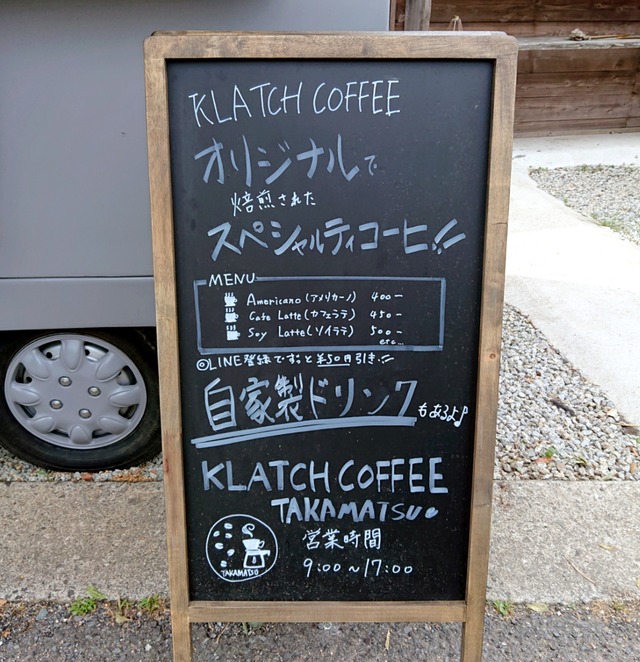 KLATCH COFFEE
オリジナルで
焙煎された
スペシャルティコーヒー!!
MENU
Americano (アメリカーノ) 400-
Cafe Latte (カフェラテ) 450-
Soy Latte (ソイラテ) 500-
etc...
◎LINE登録でずっと¥50円引き!!
自家製ドリンク
もあるよ♪
KLATCH COFFEE
TAKAMATSU
TAKAMATSU
営業時間
9:00~17:00